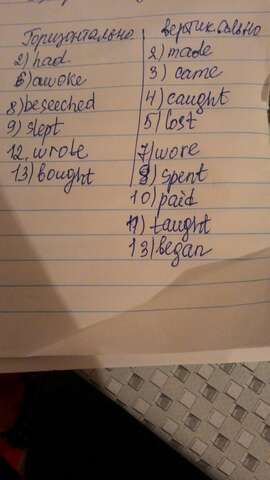 Горизонтально
2) had
6) awoke
8) beseeched
9) slept
12. wrote
13) bought
вертикально
2) made
3) came
4) caught
5) lost
7) wore
9) spent
10) paid
11) taught
13) began